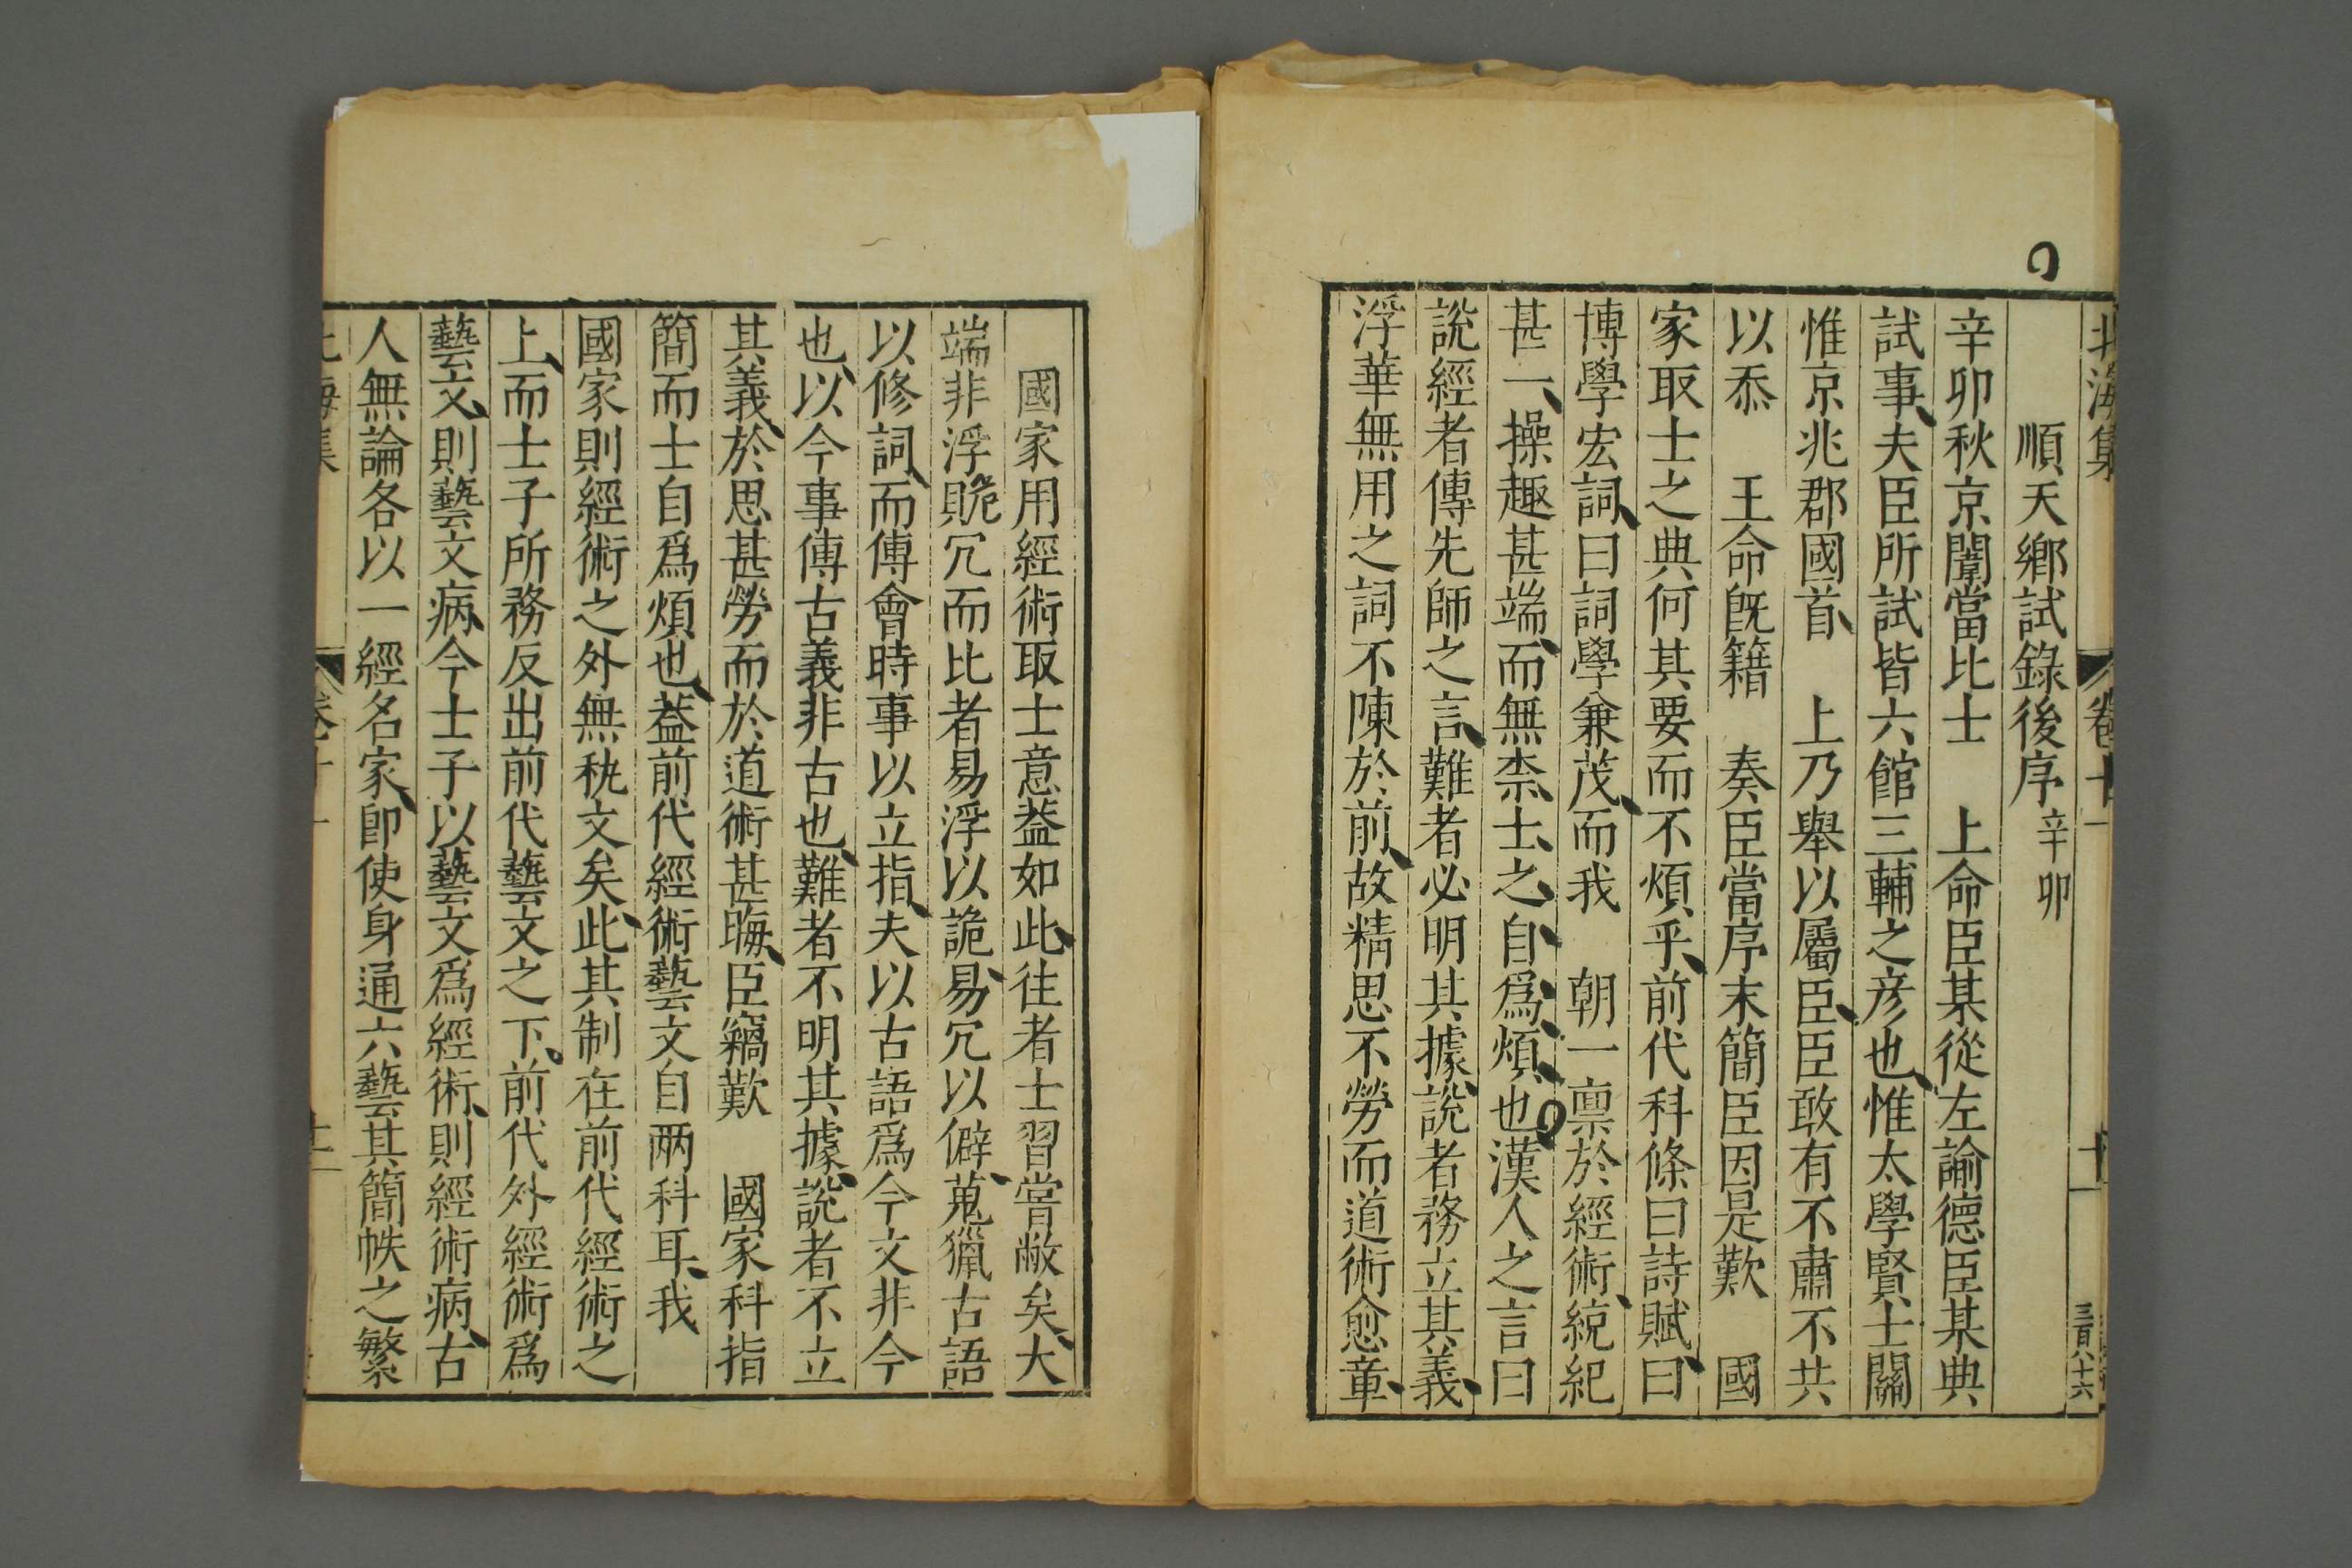 北海集 卷十一 十一 三百八十六
順天鄉試錄後序 辛卯
辛卯秋京闈當比士 上命臣某從左諭德臣某典
試事夫臣所試皆六館三輔之彦也惟太學賢士關
惟京兆郡國首 上乃舉以屬臣臣敢有不肅不共
以忝 王命旣籍 奏臣當序末簡臣因是歎 國
家取士之典何其要而不煩乎前代科條曰詩賦曰
博學宏詞曰詞學兼茂而我 朝一禀於經術統紀
甚一操趣甚端而無柰士之自爲煩也漢人之言曰
說經者傳先師之言難者必明其據說者務立其義
浮華無用之詞不陳於前故精思不勞而道術愈章
國家用經術取士意葢如此往者士習嘗敝矣大
端非浮貹冗而比者易浮以詭易冗以僻蒐獵古語
以修詞而傅會時事以立指夫以古語爲今文非今
也以今事傅古義非古也難者不明其據說者不立
其義於思甚勞而於道術甚晦臣竊歎 國家科指
簡而士自爲煩也葢前代經術藝文自兩科耳我
國家則經術之外無秇文矣此其制在前代經術之
上而士子所務反出前代藝文之下前代外經術爲
藝文則藝文病今士子以藝文爲經術則經術病古
人無論各以一經名家即使身通六藝其簡帙之繁